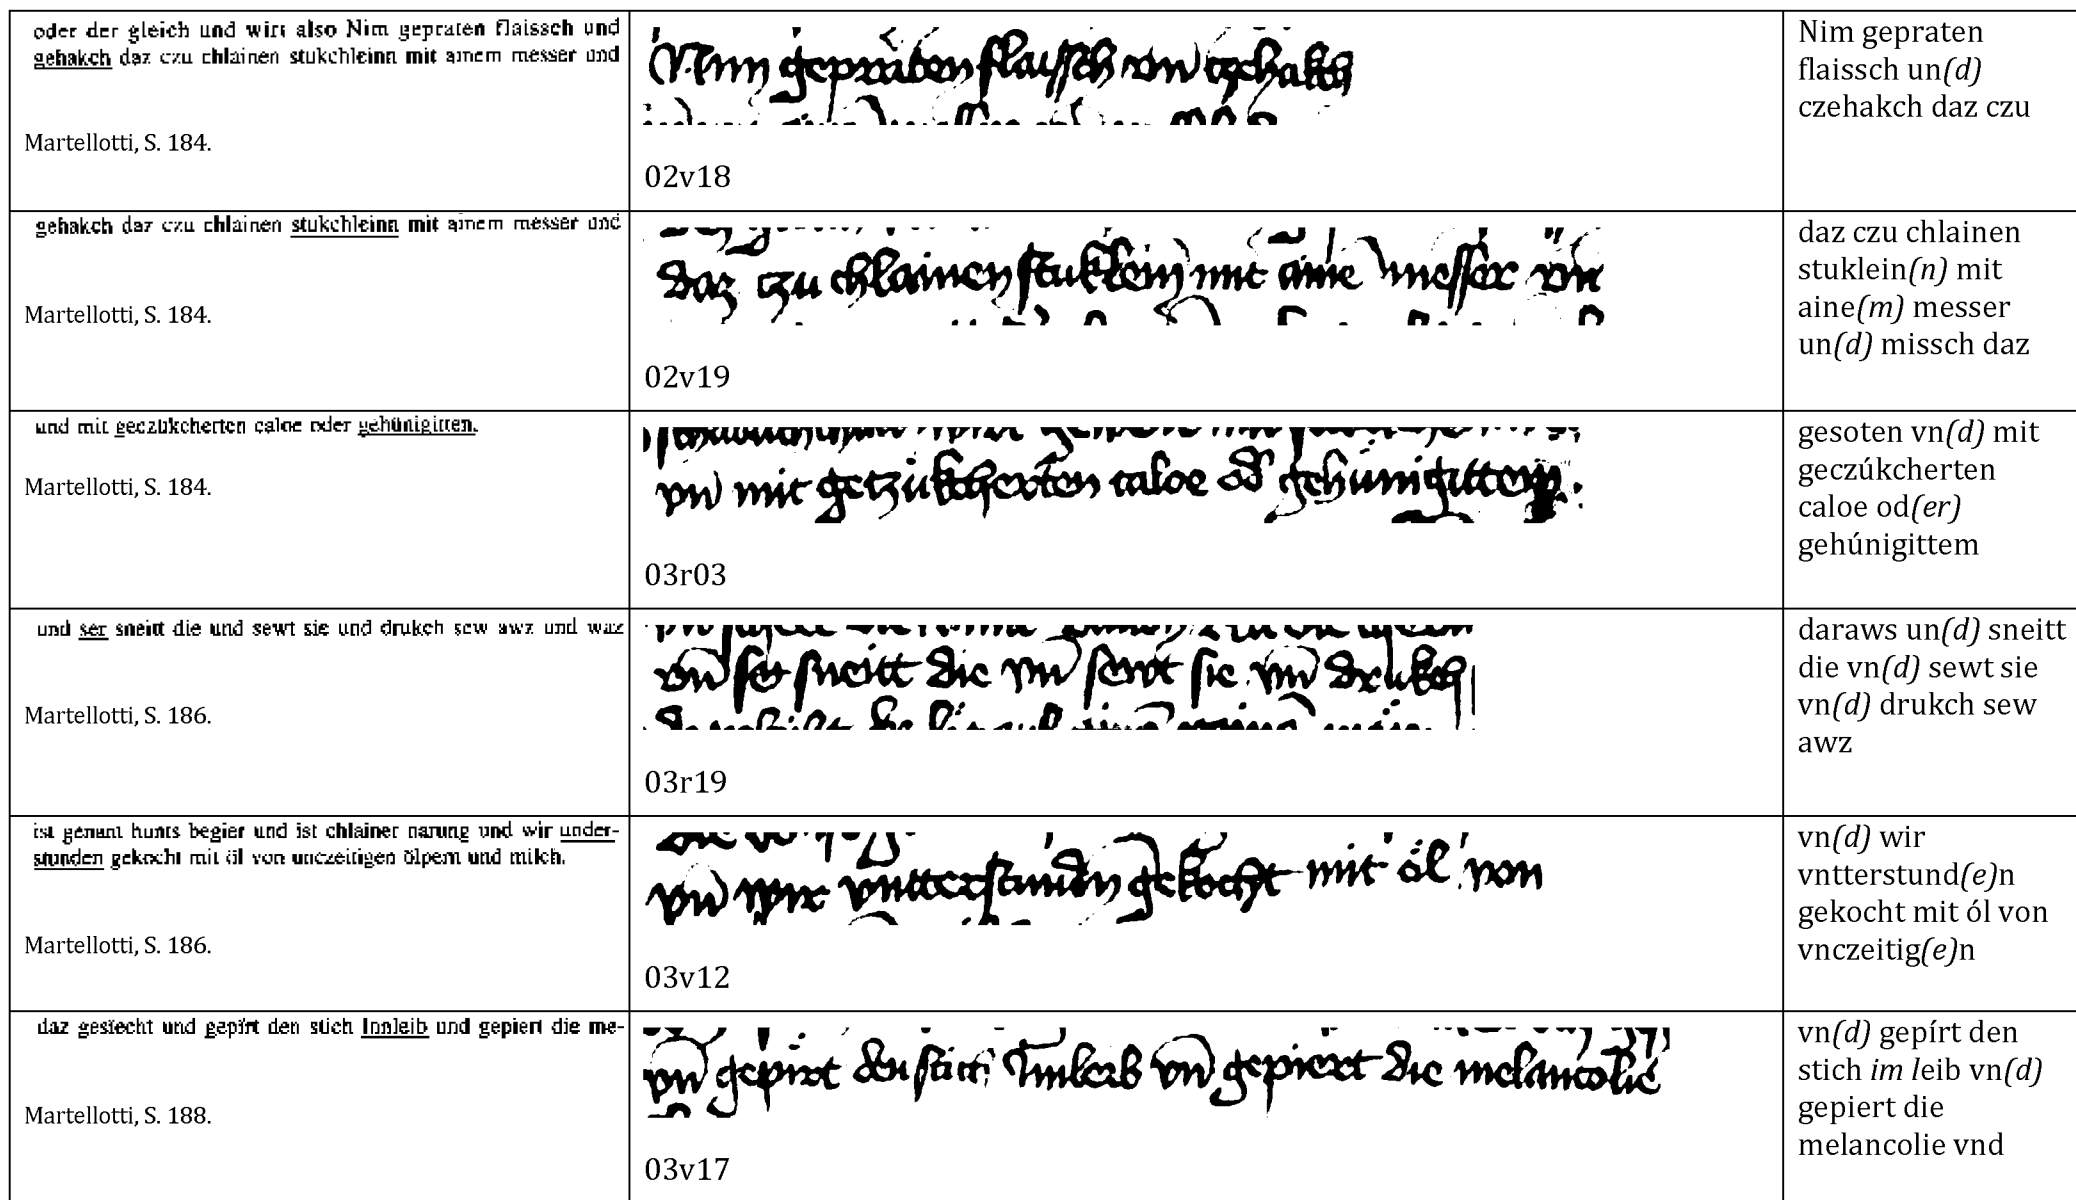 oder der gleich und wirt also Nim gepraten flaissch und
gehakch daz czu chlainen stukchleinn mit ainem messer und
Martellotti, S. 184.
Nim gepraten flaissch vn czehakch
02v18
Nim gepraten
flaissch un(d)
czehakch daz czu
gehakch daz czu chlainen stukchleinn mit ainem messer und
Martellotti, S. 184.
daz czu chlainen stuklein mit aine messer vn
02v19
daz czu chlainen
stuklein(n) mit
aine(m) messer
un(d) missch daz
und mit geczúkcherten caloe oder gehúnigitten.
Martellotti, S. 184.
vn mit geczúkcherten caloe od gehúnigitten
03r03
gesoten vn(d) mit
geczúkcherten
caloe od(er)
gehúnigittem
und ser sneitt die und sewt sie und drukch sew awz und waz
Martellotti, S. 186.
vn ser sneitt die vn sewt sie vn drukch
03r19
daraws un(d) sneitt
die vn(d) sewt sie
vn(d) drukch sew
awz
ist genant hunts begier und ist chlainer narung und wir under-
stunden gekocht mit öl von unczeitigen ölpern und milch.
Martellotti, S. 186.
vn wir vntterstundn gekocht mit ól von
03v12
vn(d) wir
vntterstund(e)n
gekocht mit ól von
vnczeitig(e)n
daz gesiecht und gepírt den stich Innleib und gepiert die me-
Martellotti, S. 188.
vn gepírt den stich Innleib vn gepiert die melancolie
03v17
vn(d) gepírt den
stich im leib vn(d)
gepiert die
melancolie vnd